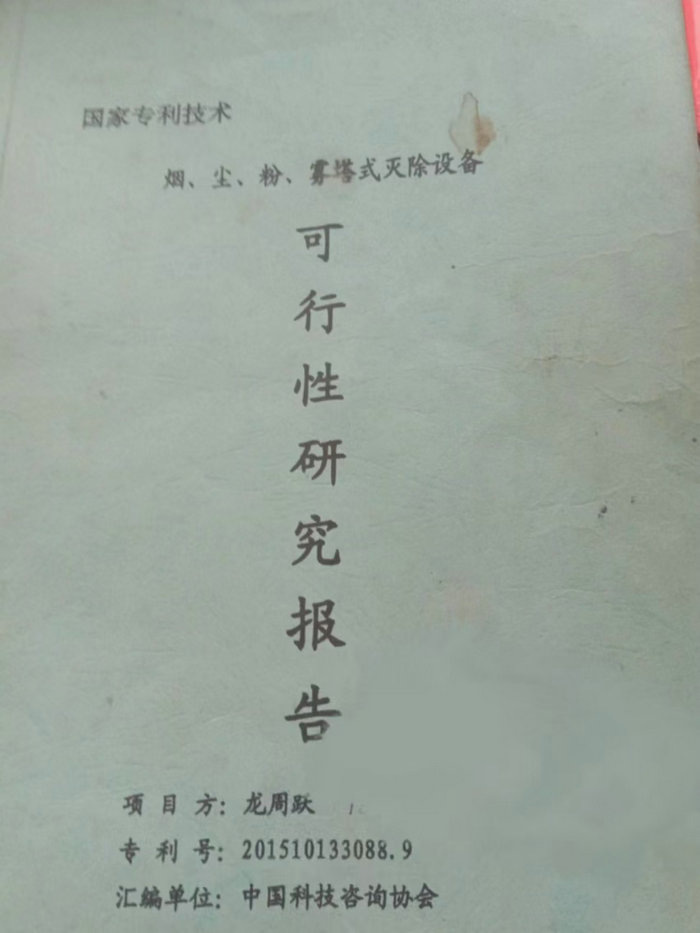 国家专利技术
烟、尘、粉、雾塔式灭除设备
可行性研究报告
项目方：龙周跃
专利号：201510133088.9
汇编单位：中国科技咨询协会